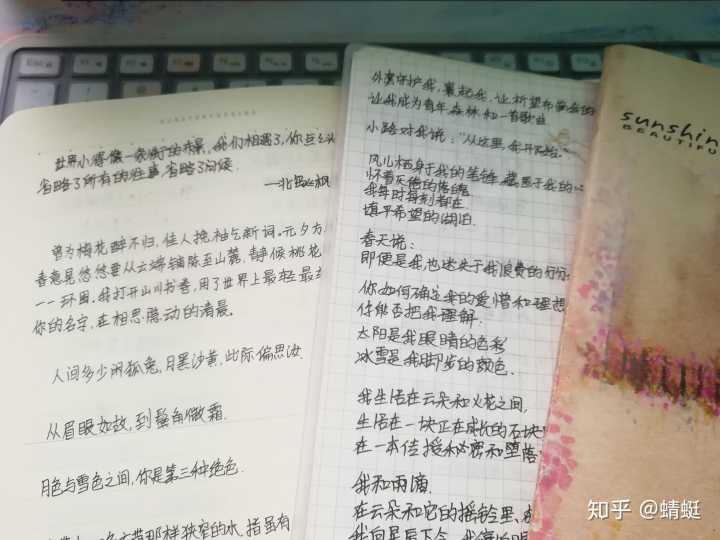 世界小得像一条街的布景，我们相遇了，你点点头
省略了所有的往事，省略了问候
——北岛
曾为梅花醉不归，佳人挽袖乞新词。元夕方
春意晃悠悠要从云端铺陈至山麓，静候桃花
一一环国。我打开山川书卷，用了世界上最轻最
你的名字，在相思震动的清晨。
人间多少闲狐兔，月黑沙黄，此际偏思汝
从眉眼如故，到鬓角微霜
月色与雪色之间，你是第三种绝色
那样狭窄的水，指虽有
外壳守护我，裹起我，让祈望布满我的
让我成为青年、森林和一首歌曲
小路对我说："从这里，我开始。"
风儿栖身于我的
怀着
我每时每刻都在
填平希望的湖泊
春天说：
即便是我也迷失于我浪费的
你如何确定我的爱惜和理想
你能否把我理解
太阳是我眼睛的色彩
冰雪是我脚步的颜色
我生活在云朵和火花之间，
生活在一块正在成长的石块
在一本传授秘密和堕落
我和雨滴
在云朵和它的摇铃里、
sunshin
BEAUTIFU
知乎 @蜻蜓